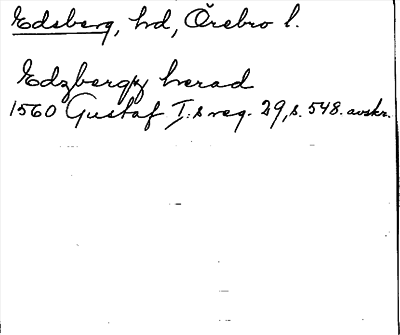 Edsberg, hd, Örebro l.
Edzbergz herad
1560 Gustaf I:s reg. 29, s. 548. avskr.